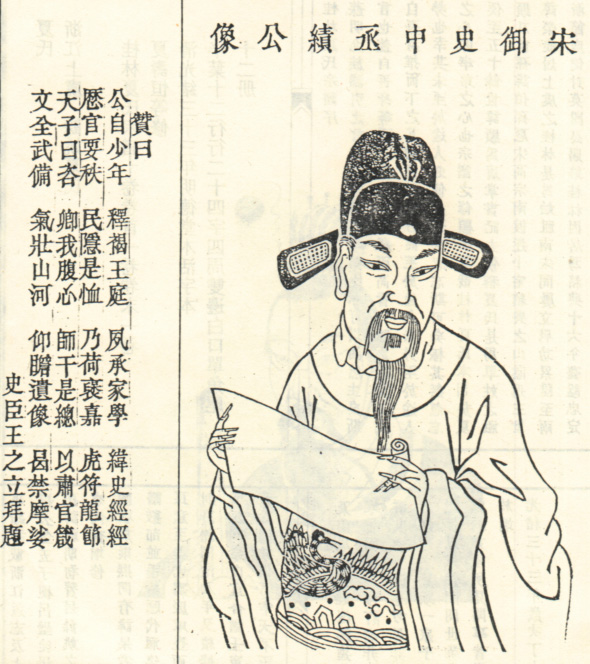 宋御史中丞績公像
贊曰
公自少年 釋褐王庭 夙承家學 緯史經經
厯官要秩 民隱是恤 乃荷褒嘉 虎符龍節
天子曰咨 卿我腹心 師干是總 以肅官箴
文全武備 氣壯山河 仰瞻遺像 曷禁摩娑
史臣王之立拜題